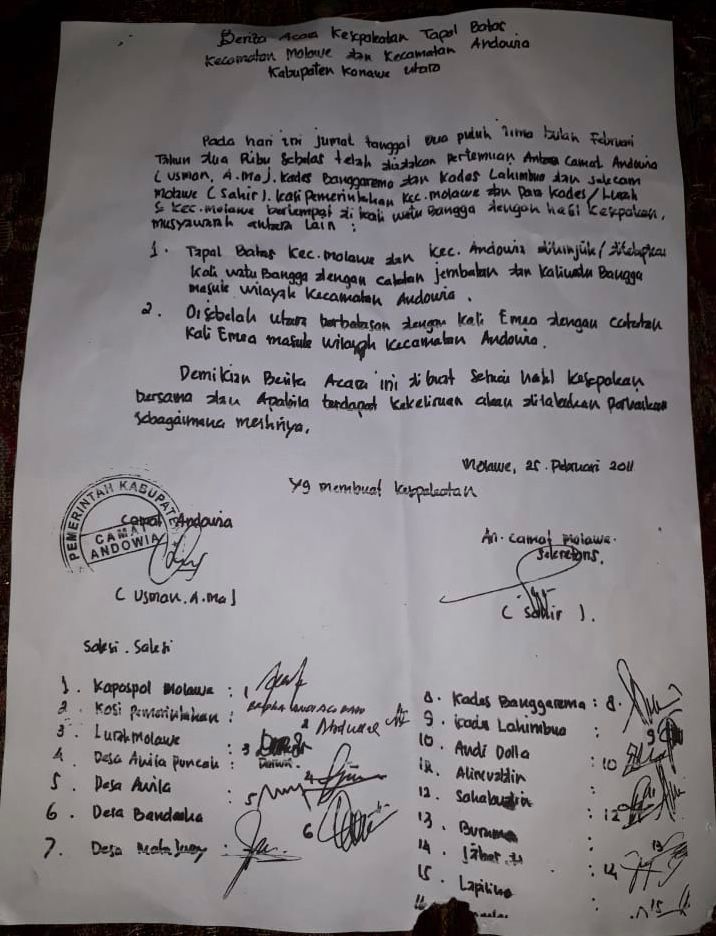 Berita Acara Kesepakatan Tapal Batas
Kecamatan Molawe dan Kecamatan Andowia
Kabupaten Konawe Utara
Pada hari ini jumat tanggal dua puluh lima bulan Februari
Tahun dua Ribu Sebelas telah diadakan pertemuan Antara Camat Andowia
( Usman, A.Ma ). Kades Banggarema dan Kades Lahimbua dan Sekcam
Molawe ( Sahir ). Kasi Pemerintahan Kec. Molawe dan Para Kades / Lurah
Kec. Molawe bertempat di kali watu Bangga dengan hasil kesepakatan,
musyawarah antara lain :
1. Tapal Batas Kec. Molawe dan Kec. Andowia ditunjuk / ditetapkan
kali watu Bangga dengan catatan jembatan dan kali watu Bangga
masuk wilayah Kecamatan Andowia.
2. Disebelah utara berbatasan dengan kali Emea dengan catatan
Kali Emea masuk wilayah Kecamatan Andowia.
Demikian Berita Acara ini dibuat sesuai hasil kesepakatan
bersama dan Apabila terdapat kekeliruan akan diadakan perbaikan
sebagaimana mestinya.
Molawe, 25. Pebruari 2011
Yg membuat kespakatan
Camat Andowia
PEMERINTAH KABUPAT
CAMAT
ANDOWIA
( Usman. A.Ma )
An. Camat Molawe.
Sekretaris.
( Sahir ).
Saksi. Saksi
1. Kapospol Molawe : 1
2. Kasi Pemerintahan : 2
3. Lurah Molawe : 3
4. Desa Awila Puncak : 4
5. Desa Awila : 5
6. Desa Bandaeha 6
7. Desa Mata :
8. Kades Banggarema : 8.
9. Kades Lahimbua : 9
10. Andi Dolla : 10
11. Alimuddin
12. Sahabuddin : 12
13. 13
14. Jabar : 14
15. : 15